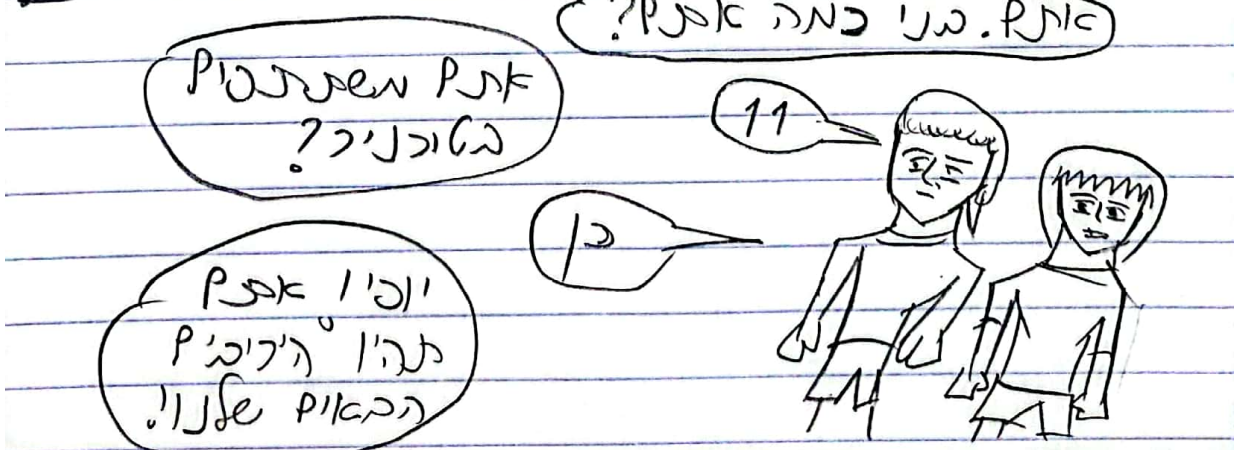 אתם. בני כמה אתם?
11
אתם משתתפים
בטורניר?
כן
יופי! אתם
תהיו היריבים
הבאים שלנו!